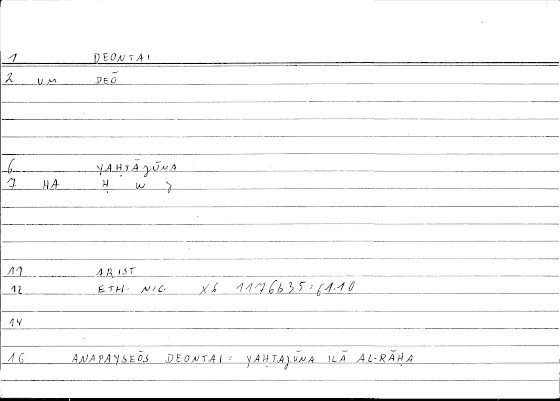 1 DEONTAI
2 VM DEŌ
6 YAḤTĀǧŪNA
7 HA Ḥ W ǧ
11 ARIST
12 ETH. NIC. X6 1176b35 : 61.10
14
16 ANAPAYSEŌS DEONTAI : YAḤTAǧŪNA ILĀ AL-RĀḤA